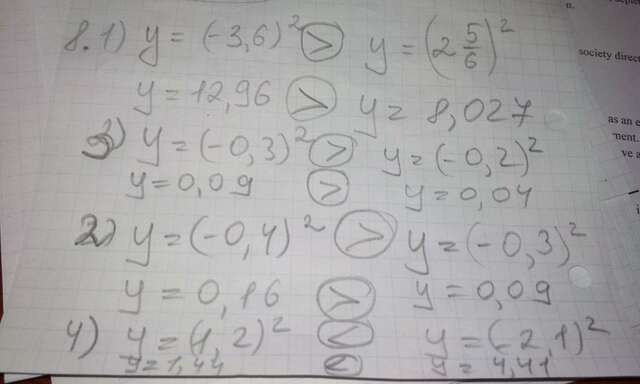 n.
8.1) y = (-3,6)² > y = (2 5/6)²
society direct
y = 12,96 > y = 8,027
as an e
3) y = (-0,3)² > y = (-0,2)²
ment.
ve a
y = 0,09 > y = 0,04
2) y = (-0,4)² > y = (-0,3)²
y = 0,16 > y = 0,09
4) y = (1,2)² < y = (-2,1)²
y = 1,44 < y = 4,41